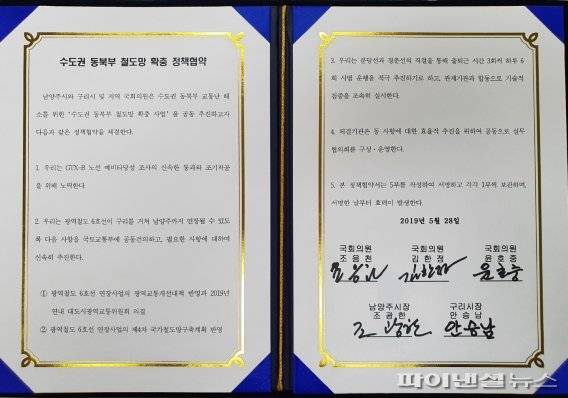 수도권 동북부 철도망 확충 정책협약
남양주시와 구리시 및 지역 국회의원은 수도권 동북부 교통난 해
소를 위한 "수도권 동북부 철도망 확충 사업"을 공동 추진하고자
다음과 같은 정책협약을 체결한다.
1. 우리는 GTX-B 노선 예비타당성 조사의 신속한 통과와 조기착공
을 위해 노력한다.
2. 우리는 광역철도 6호선이 구리를 거쳐 남양주까지 연장될 수 있도
록 다음 사항을 국토교통부에 공동건의하고, 필요한 사항에 대하여
신속히 추진한다.
① 광역철도 6호선 연장사업의 광역교통개선대책 반영과 2019년
연내 대도시광역교통위원회 의결
② 광역철도 6호선 연장사업의 제4차 국가철도망구축계획 반영
3. 우리는 분당선과 경춘선의 직결을 통해 출퇴근 시간 3회씩 하루 6
회 시범 운행을 적극 추진하기로 하고, 관계기관과 합동으로 기술적
검증을 조속히 실시한다.
4. 체결기관은 동 사항에 대한 효율적 추진을 위하여 공동으로 실무
협의회를 구성·운영한다.
5. 본 정책협약서는 5부를 작성하여 서명하고 각각 1부씩 보관하며,
서명한 날부터 효력이 발생한다.
2019년 5월 28일
국회의원 국회의원 국회의원
조응천 김한정 윤호중
조응천 김한정 윤호중
남양주시장 구리시장
조광한 안승남
조광한 안승남
파이낸셜뉴스